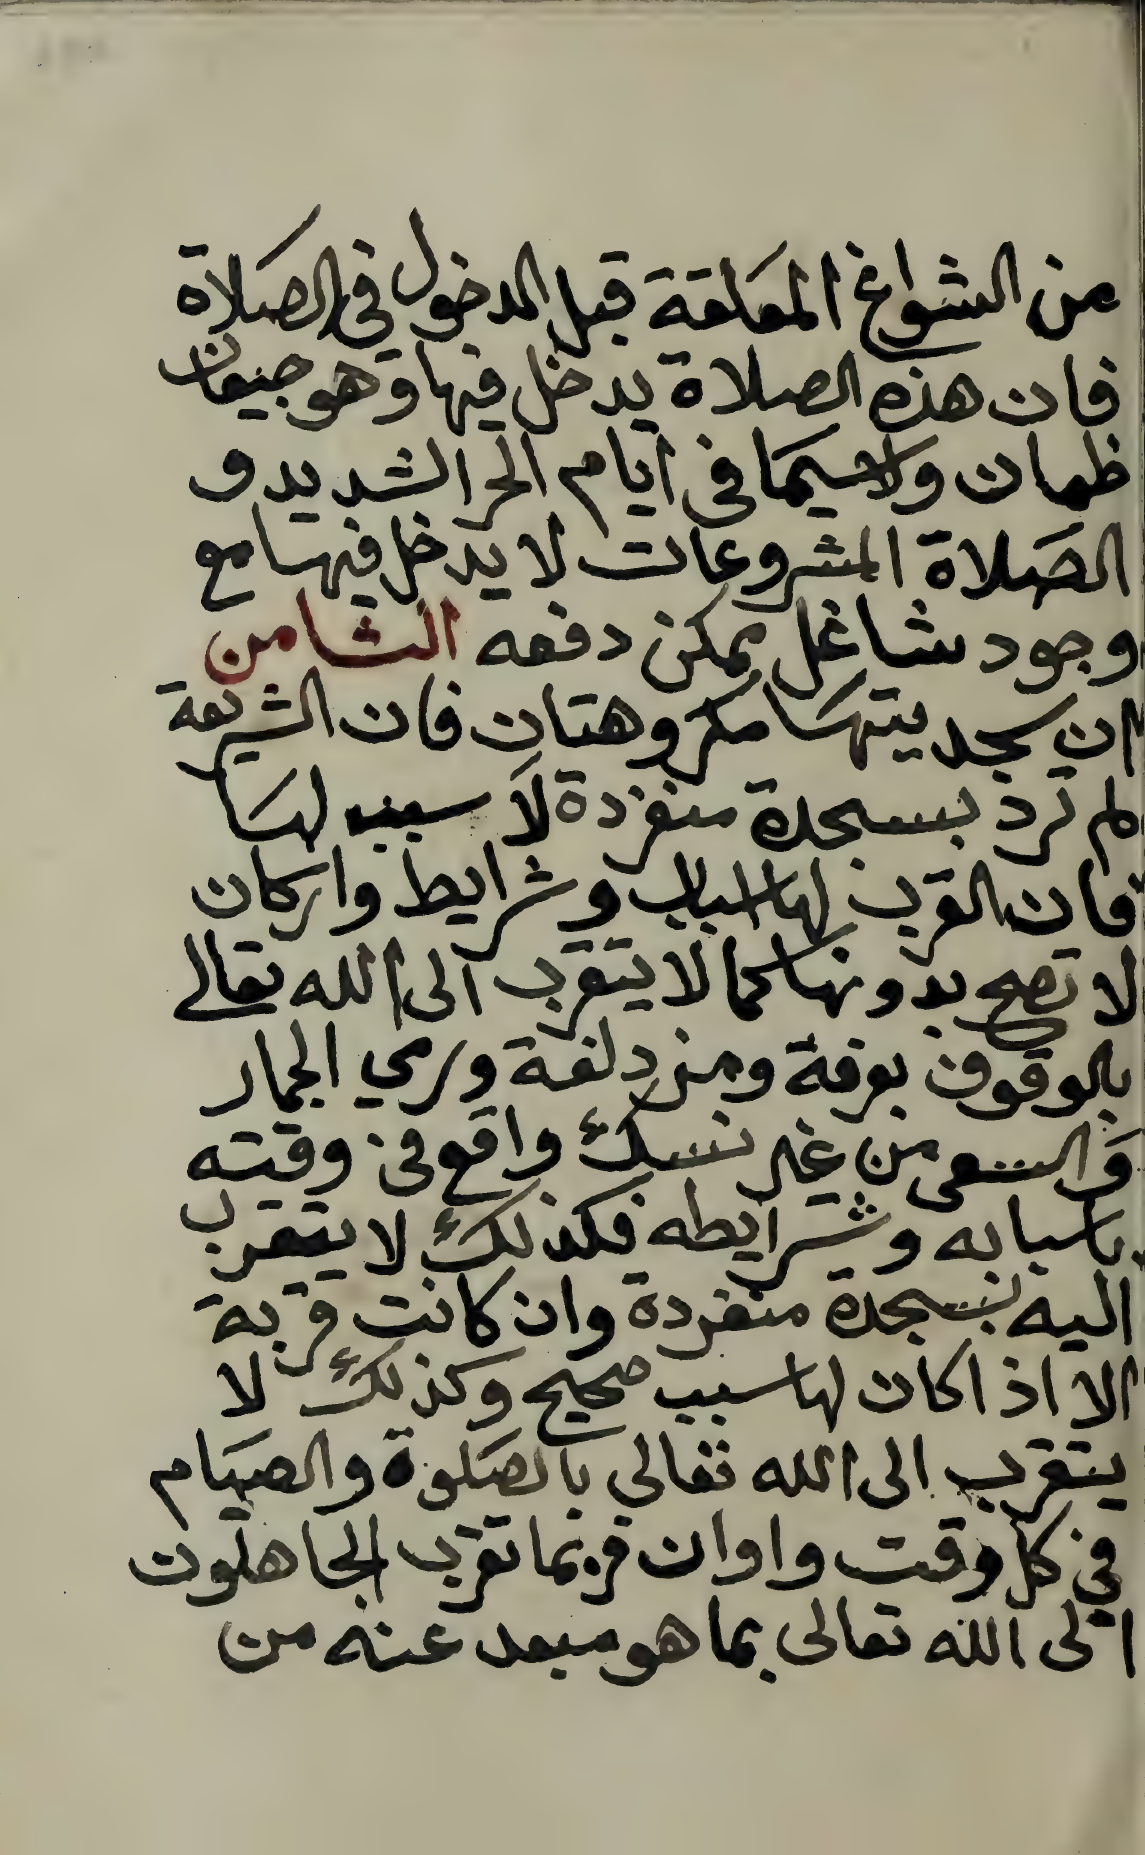 من الشواغ المعلقة قبل الدخول في الصلاة
فان هذه الصلاة يدخل فيها وهو جيعان
ظمان ولاسيما في ايام الحر الشديد و
الصلاة المشروعات لا يدخل فيها مع
وجود شاغل يمكن دفعه الثامن
ان سجديتها مكروهتان فان الشريعة
لم ترد بسجدة منفردة لا سبب لها
فان القرب لها اسباب وشرايط واركان
لا تصح بدونها كما لا يتقرب الى الله تعالى
بالوقوف بعرفة ومزدلفة ورمي الجمار
والسعى من غير نسك واقع في وقته
باسبابه وشرايطه فكذلك لا يتقرب
اليه بسجدة منفردة وان كانت قربة
الا اذا كان لها سبب صحيح وكذلك لا
يتقرب الى الله تعالى بالصلوة والصيام
في كل وقت واوان فربما تقرب الجاهلون
الى الله تعالى بما هو مبعد عنه من